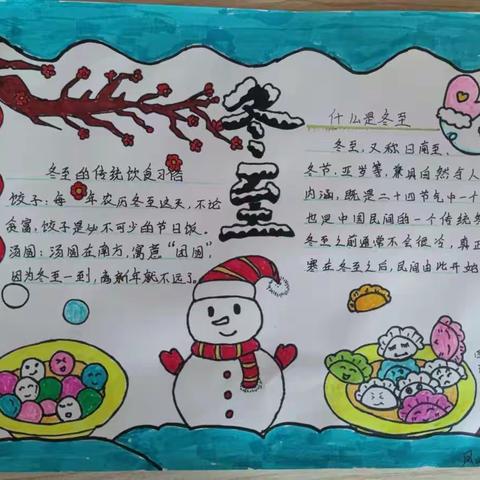 冬至
冬至的传统饮食习俗
饺子:每年农历冬至这天,不论
贫富,饺子是必不可少的节日饭。
汤圆:汤圆在南方,寓意"团圆"
因为冬至一到,离新年就不远了。
什么是冬至
冬至,又称日南至、
冬节、亚岁等,兼具自然与人
内涵,既是二十四节气中一个
也是中国民间的一个传统
冬至之前通常不会很冷,真正
寒在冬至之后,民间由此开始